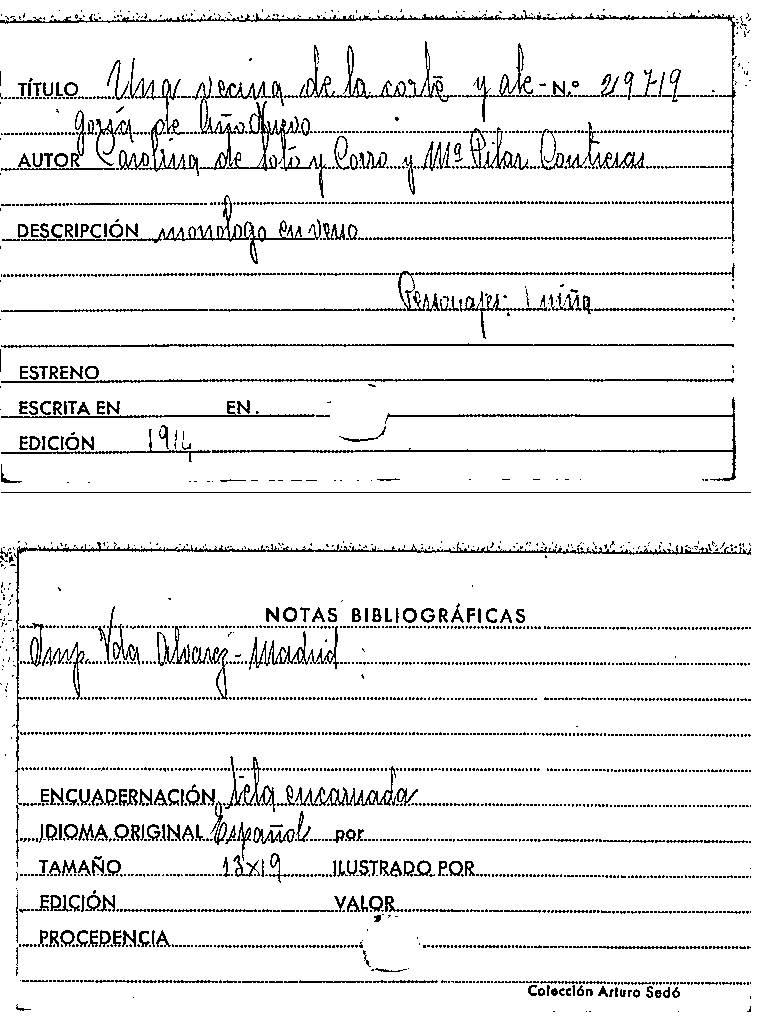 TÍTULO Una vecina de la corte y ale- N.º 29719
goría de Año Nuevo
AUTOR Carolina de Soto y Corro y Mª Pilar Contreras
DESCRIPCIÓN monologo en verso
Personajes: 1 niña
ESTRENO
ESCRITA EN EN.
EDICIÓN 1914
NOTAS BIBLIOGRÁFICAS
Imp. Vda Alvarez - Madrid
ENCUADERNACIÓN tela encarnada
IDIOMA ORIGINAL Español por
TAMAÑO 13x19 ILUSTRADO POR
EDICIÓN VALOR
PROCEDENCIA
Colección Arturo Sedó